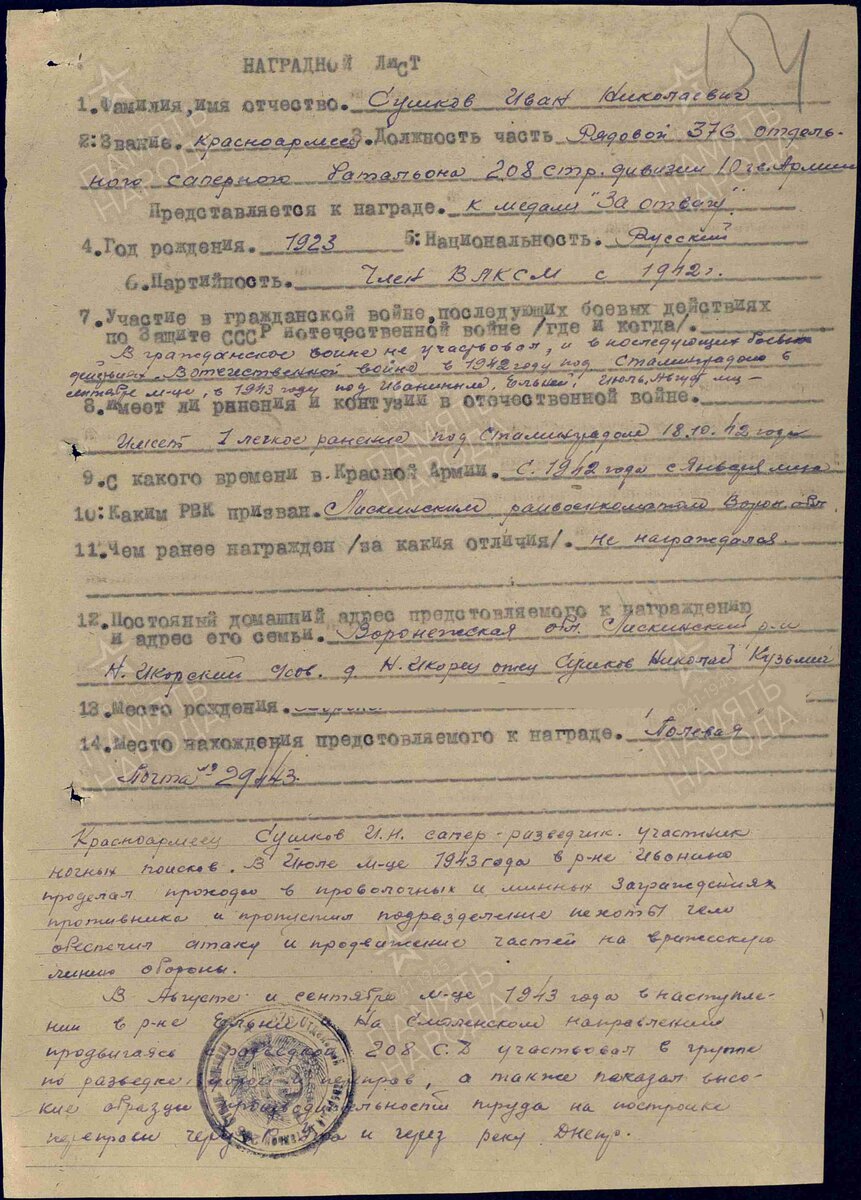 154
НАГРАДНОЙ ЛИСТ
1. Фамилия, имя отчество. Сушков Иван Николаевич
2: Звание. Красноармеец 3. Должность часть Рядовой 376 отдель-
ного саперного батальона 208 стр. дивизии 10 гв. Армии
Представляется к награде. к медали "За отвагу"
4. Год рождения. 1923 5: Национальность. Русский
6. Партийность. Член ВЛКСМ с 1942 г.
7. Участие в гражданской войне, последующих боевых действиях
по Защите СССР и отечественной войне /где и когда/.
В гражданское войне не участвовал, и в последующих боевых
действиях. В отечественной войне в 1942 году под Сталинградом в
сентябре м-це, в 1943 году под Ельней, Июль, Август м-ц-
8. Имеет ли ранения и контузии в отечественной войне.
Имеет 1 легкое ранение под Сталинградом 18.10.42 года
9. С какого времени в Красной Армии. С 1942 года с Января м-ца
10: Каким РВК призван. Лискинским райвоенкоматом Ворон. обл.
11. Чем ранее награжден /за какия отличия/. не награждался.
12. Постояный домашний адрес предстовляемого к награждению
и адрес его семьи. Воронежская обл. Лискинский р-н
Н. Икорский с/сов. д. Н. Икорец отец Сушков Николай Кузьмич
13. Место рождения.
14. Место нахождения предстовляемого к награде. Полевая
Почта № 29443.
Красноармеец Сушков И.Н. сапер-разведчик. участник
ночных поисков. В Июле м-це 1943 года в р-не Иванино
проделал проходы в проволочных и минных заграждениях
противника и пропустил подразделение пехоты чем
обеспечил атаку и продвижение частей на вражескую
линию обороны.
В Августе и сентябре м-це 1943 года в наступле-
нии в р-не Ельне и на Смоленском направлении
продвигаясь с разведкой 208 С.Д участвовал в группе
по разведке дорог и переправ, а также показал высо-
кие образцы производительности труда на постройке
переправы через и через реку Днепр.
ПАМЯТЬ НАРОДА